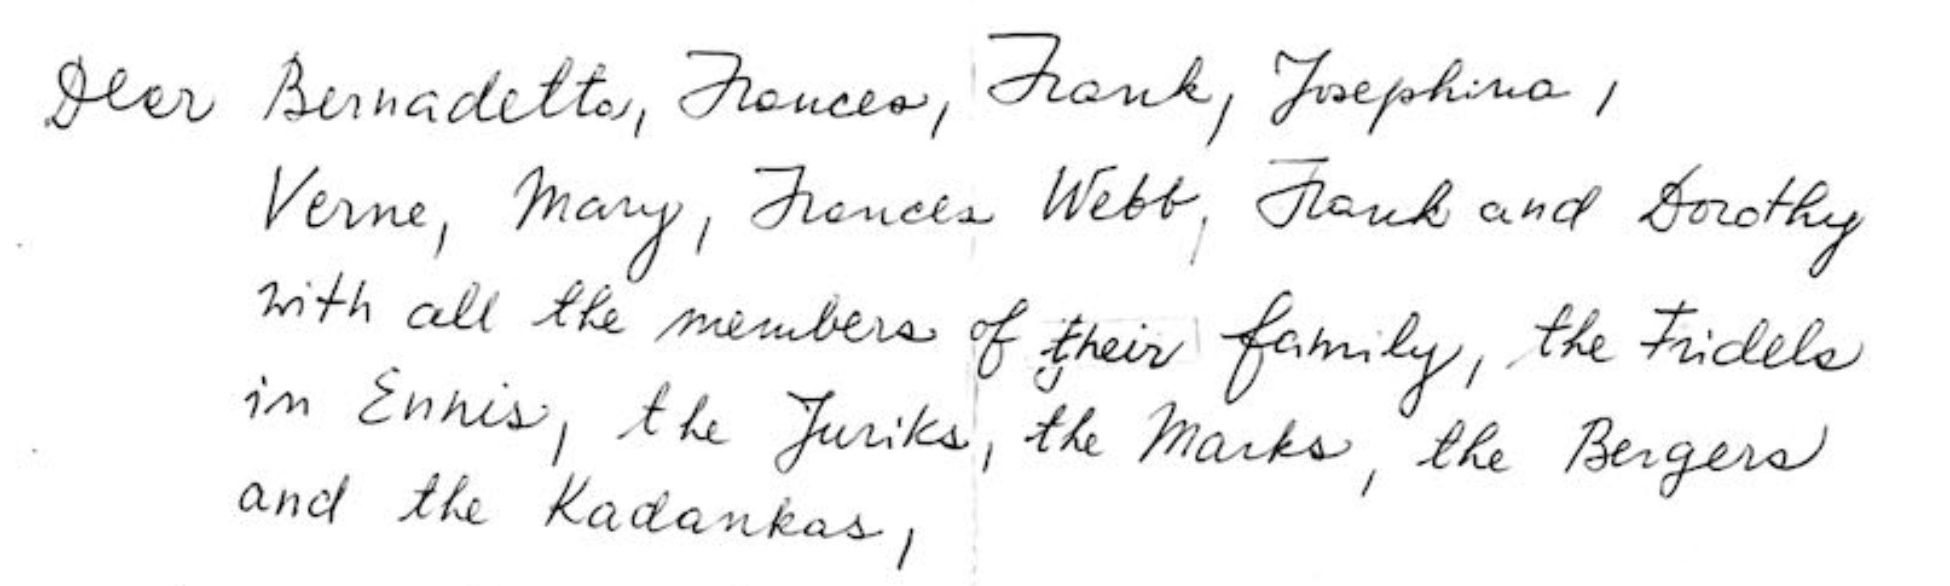 Dear Bernadetta, Frances, Frank, Josephina,
Verne, Mary, Frances Webb, Frank and Dorothy
with all the members of their family, the Fridels
in Ennis, the Juriks, the Marks, the Bergers
and the Kadankas,